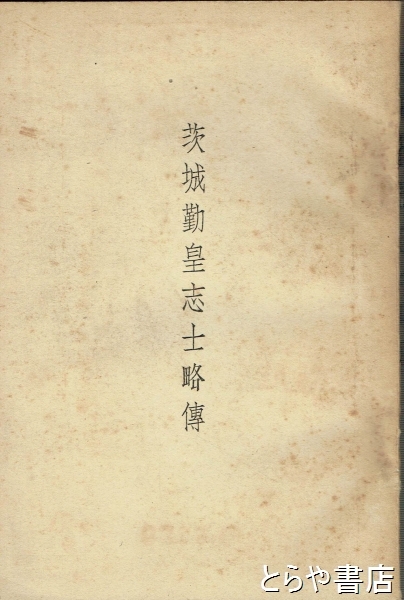 茨城勤皇志士略傳
とらや書店